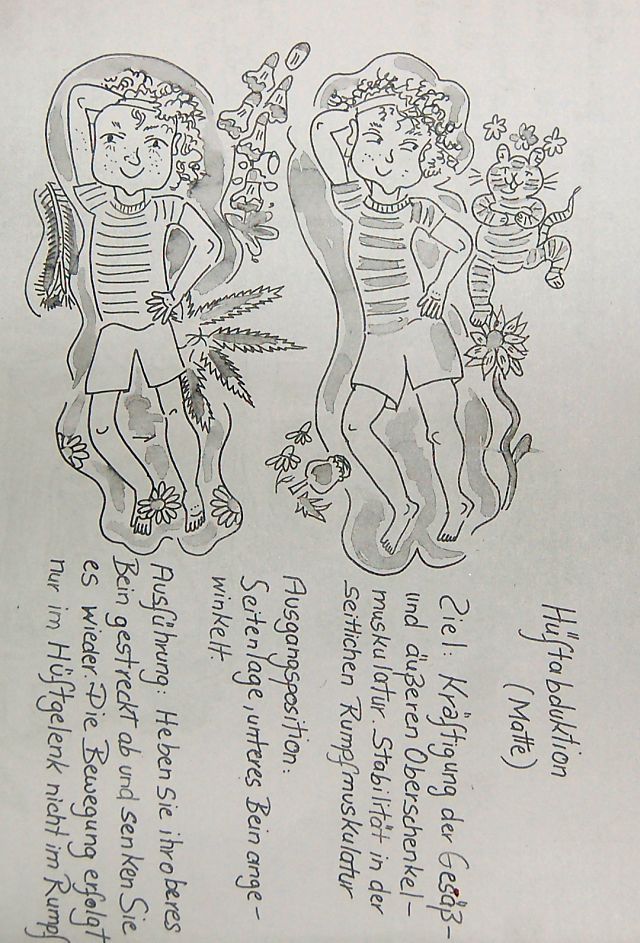 Hüftabduktion
(Matte)
Ziel: Kräftigung der Gesäß-
und äußeren Oberschenkel-
muskulatur. Stabilität in der
seitlichen Rumpfmuskulatur
Ausgangsposition:
Seitenlage, unteres Bein ange-
winkelt.
Ausführung: Heben Sie ihr oberes
Bein gestreckt ab und senken Sie
es wieder. Die Bewegung erfolgt
nur im Hüftgelenk nicht im Rumpf